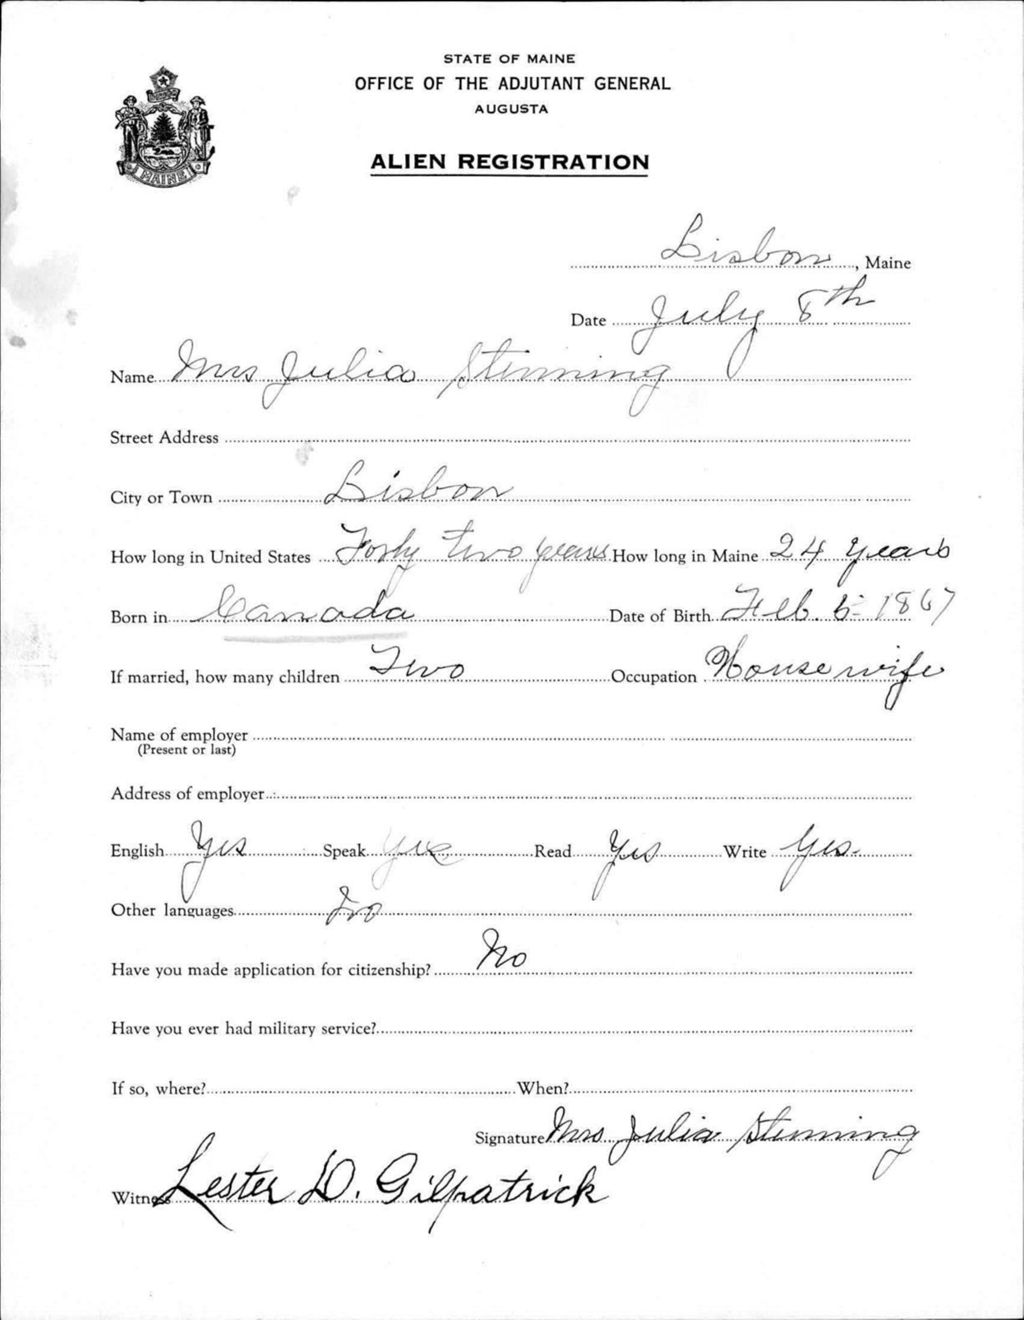 STATE OF MAINE
OFFICE OF THE ADJUTANT GENERAL
AUGUSTA
MAINE
ALIEN REGISTRATION
Lisbon, Maine
Date July 8th
Name Mrs Julia Stimming
Street Address
City or Town Lisbon
How long in United States Forty two years How long in Maine 24 years
Born in Canada Date of Birth Feb. 5 1867
If married, how many children Two Occupation Housewife
Name of employer
(Present or last)
Address of employer
English Yes Speak Yes Read Yes Write Yes.
Other languages No
Have you made application for citizenship? No
Have you ever had military service?
If so, where? When?
Signature Mrs. Julia Stimming
Witness Lester D. Gilpatrick